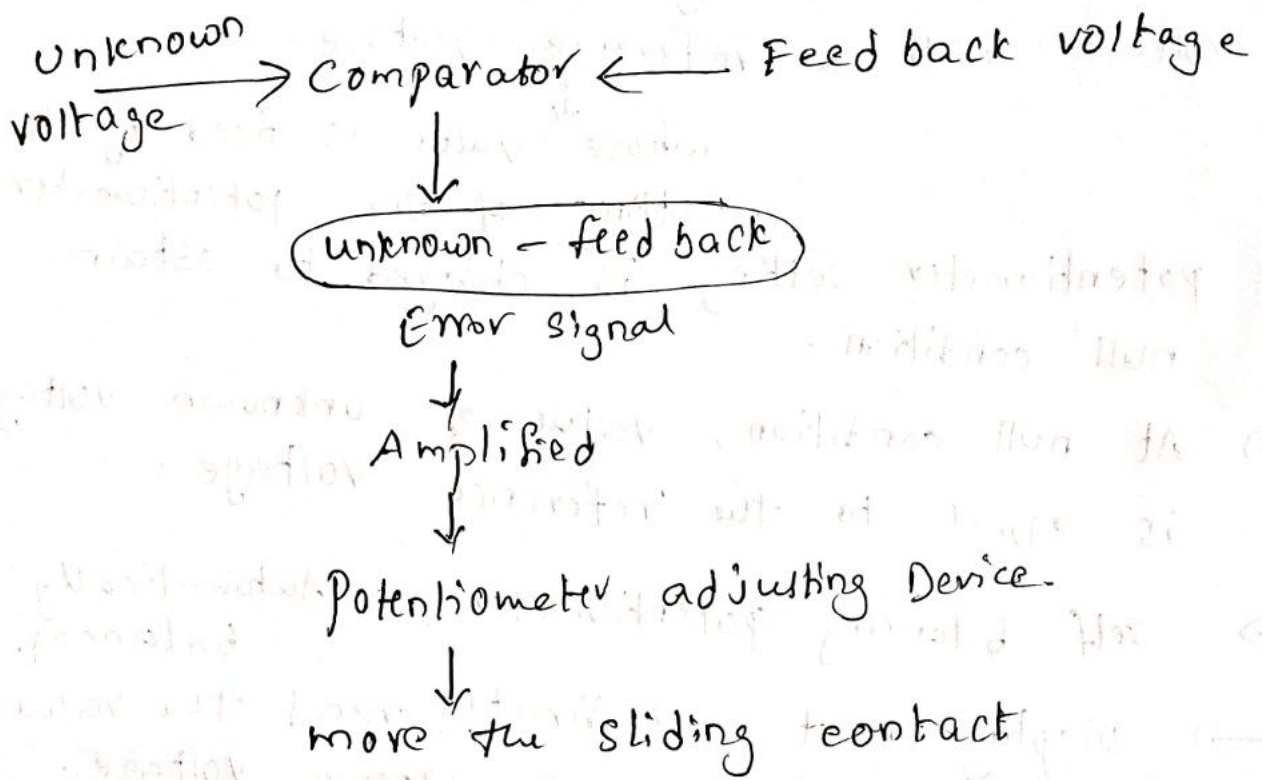 Unknown voltage → Comparator ← Feed back voltage
↓
unknown - feed back
Error signal
↓
Amplified
↓
Potentiometer adjusting Device.
↓
move the sliding contact